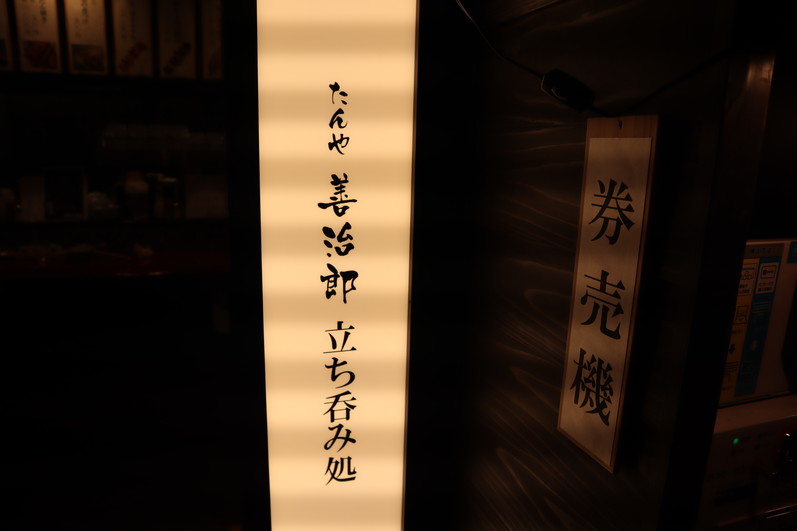 たんや 善治郎 立ち呑み処
券売機